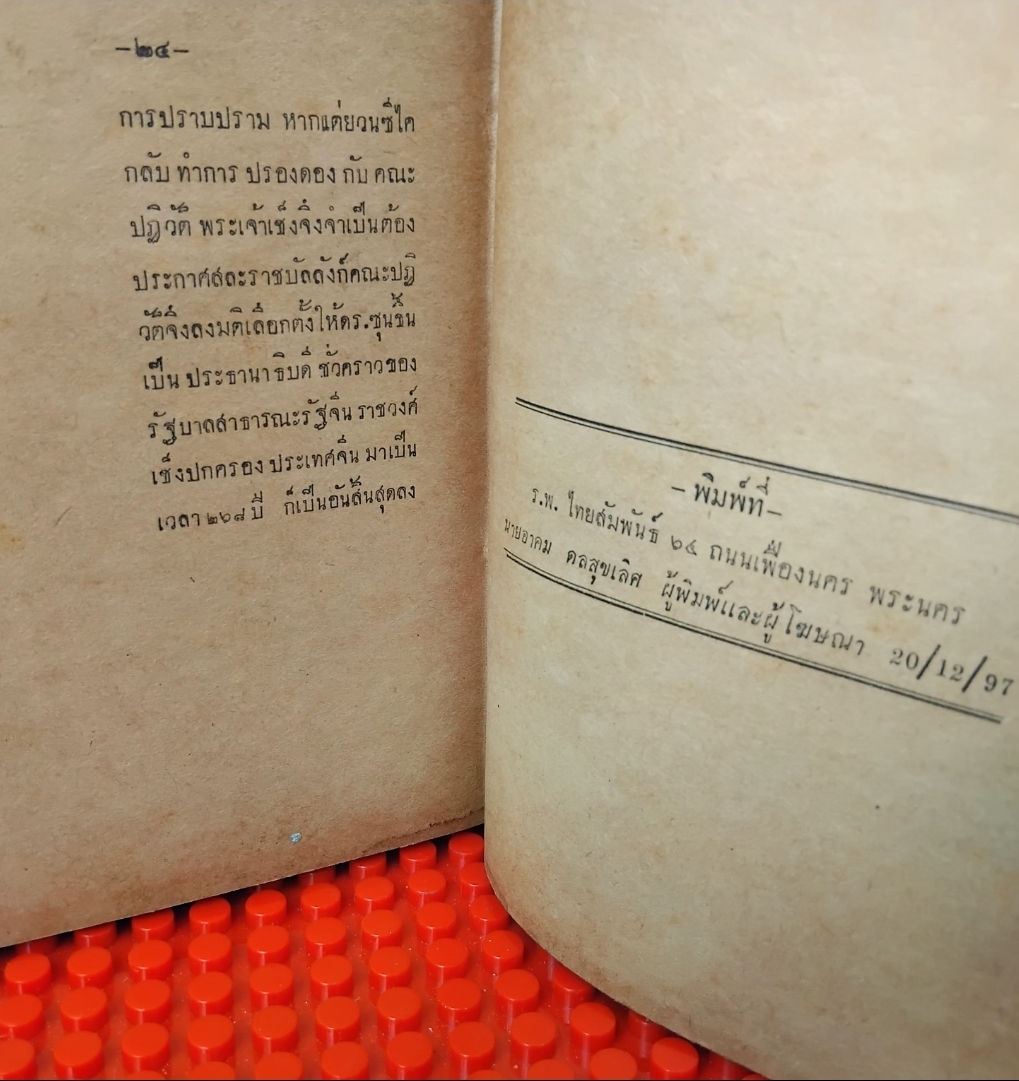 -๒๔-
การปราบปราม หากแต่ยวนซีไค
กลับ ทำการ ปรองดอง กับ คณะ
ปฏิวัติ พระเจ้าเช็งจึงจำเป็นต้อง
ประกาศสละราชบัลลังก์คณะปฏิ
วัติจึงลงมติเลือกตั้งให้ดร.ซุนยัน
เป็น ประธานาธิบดี ชั่วคราวของ
รัฐบาลสาธารณะรัฐจีน ราชวงศ์
เช็งปกครอง ประเทศจีน มาเป็น
เวลา ๒๖๘ ปี ก็เป็นอันสิ้นสุดลง
- พิมพ์ที่-
ร.พ. ไทยสัมพันธ์ ๖๔ ถนนเฟื่องนคร พระนคร
นายอาคม ดลสุขเลิศ ผู้พิมพ์และผู้โฆษณา 20/12/97